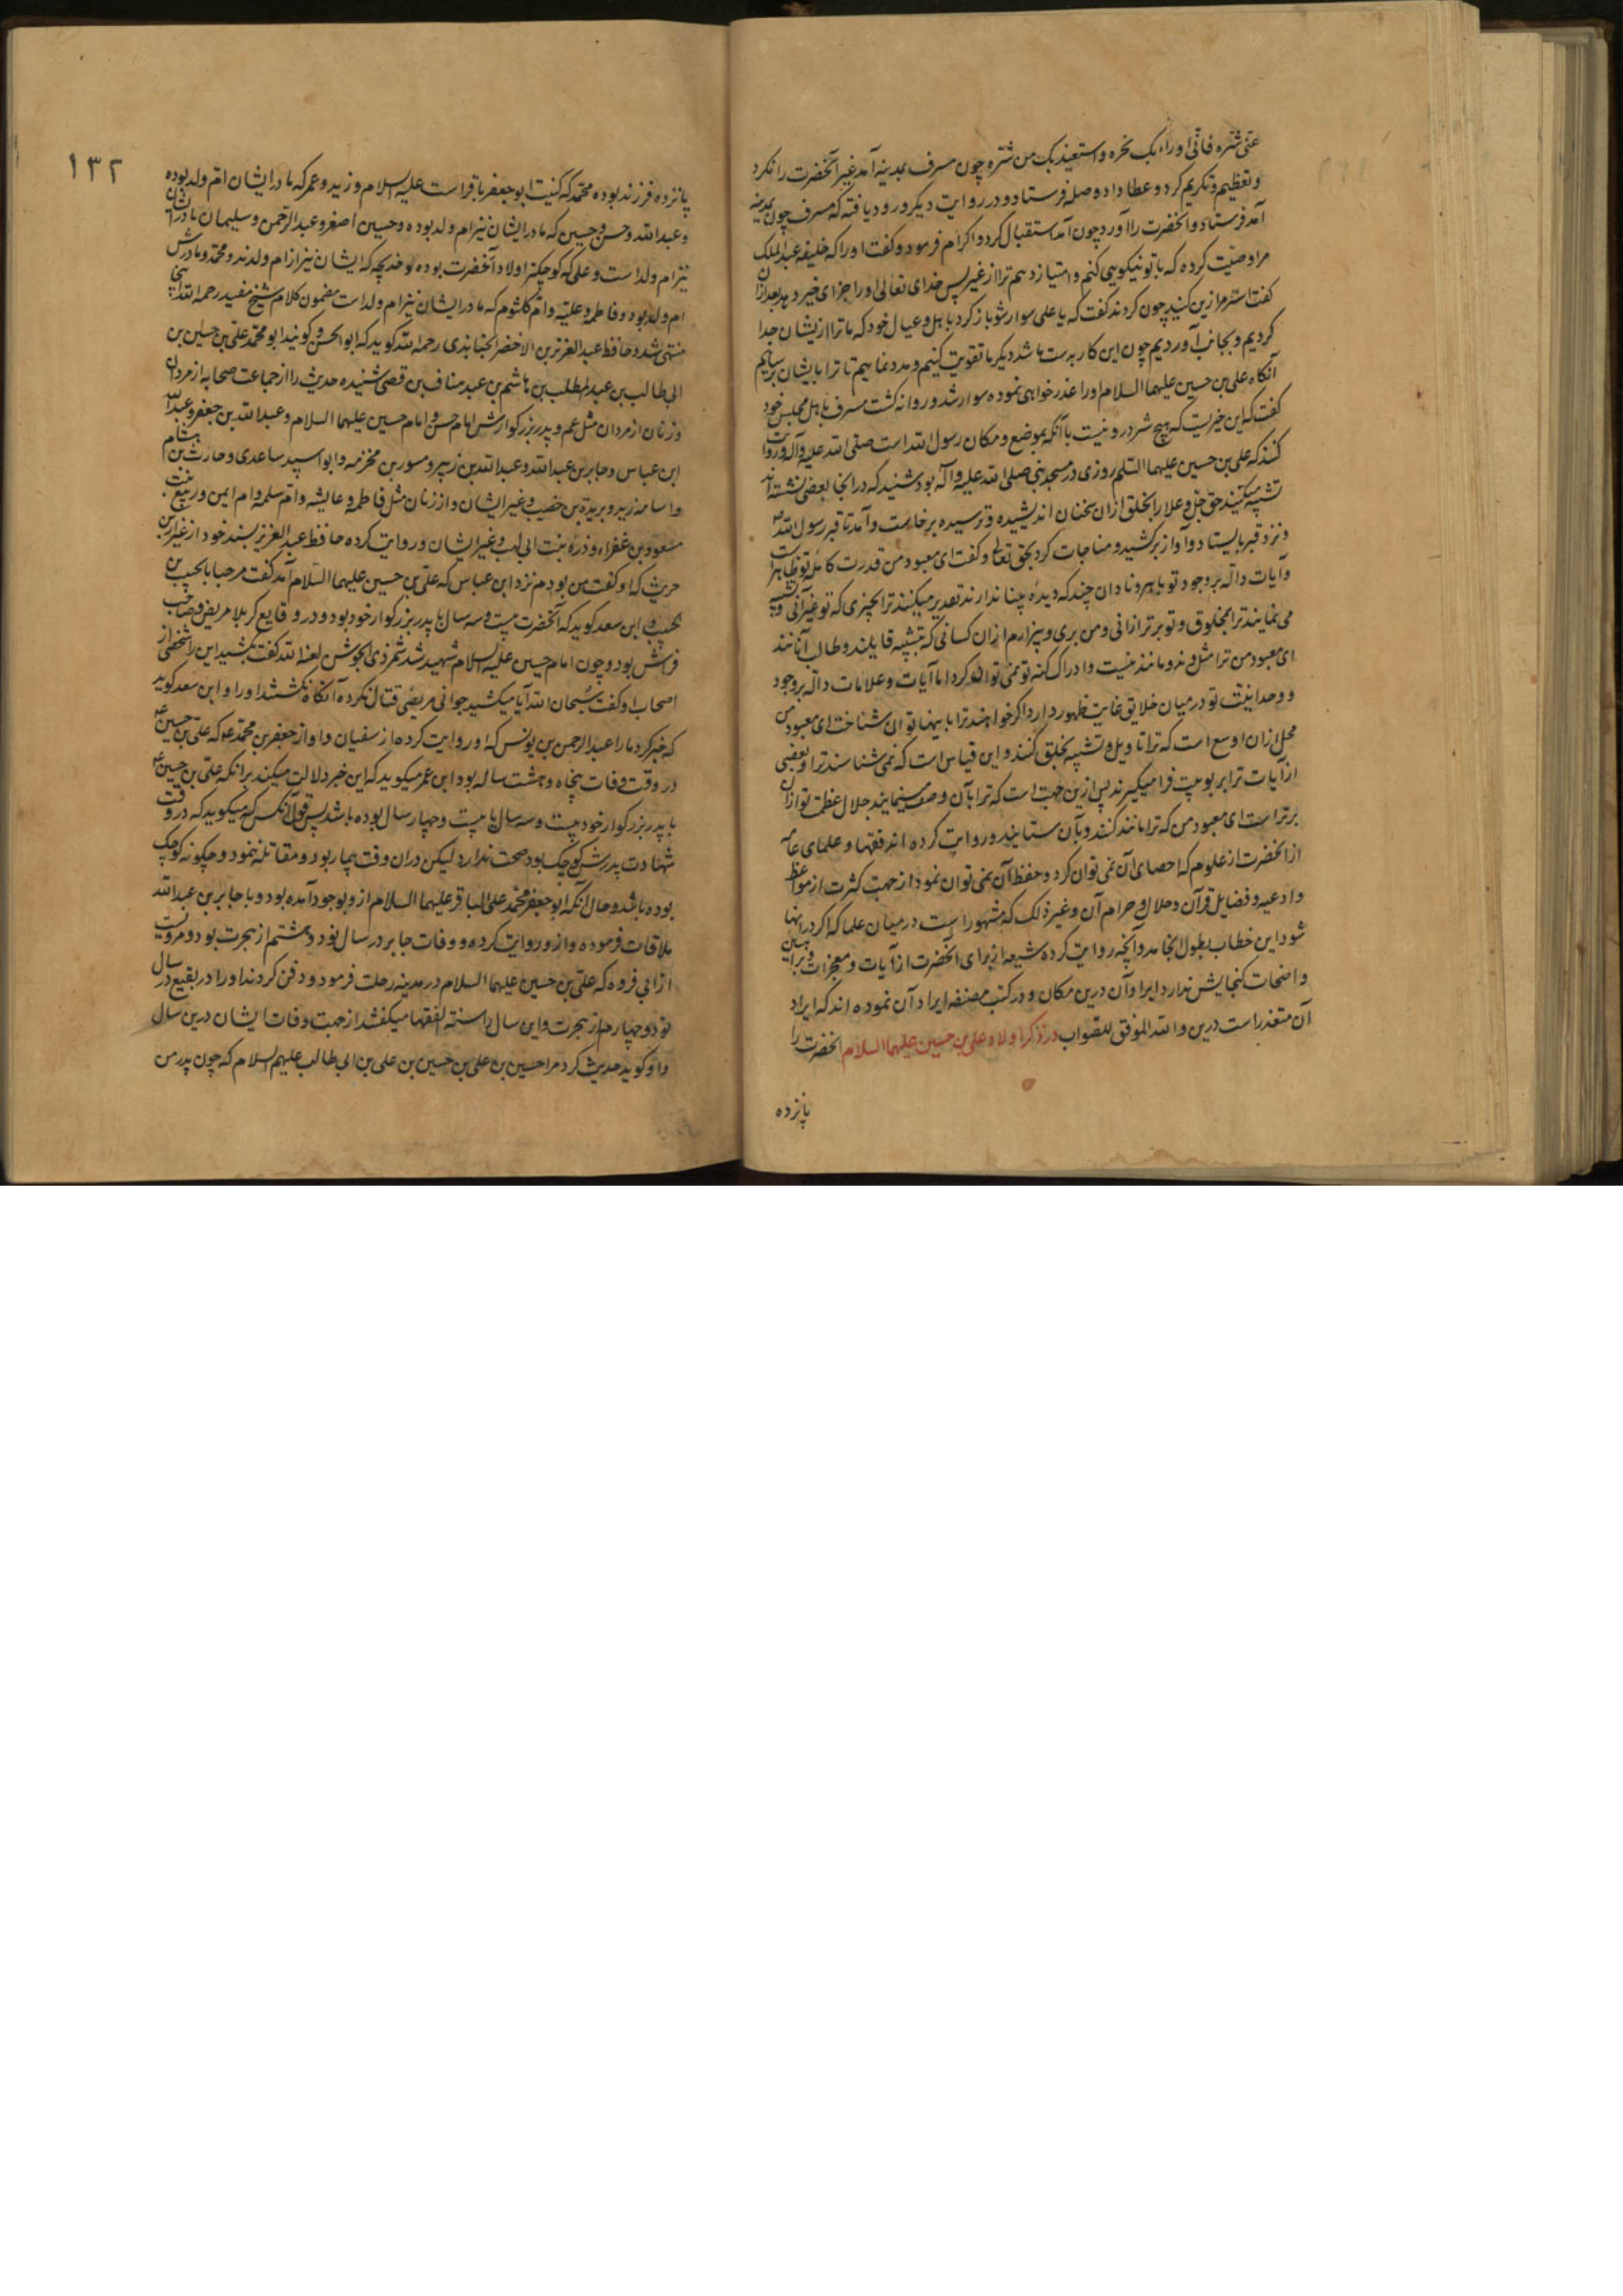 عنی شره فانی اوراء بک نحره و استعیذ بک من شره چون مسرف بمدینه آمد غیر آنحضرت را نکرد
و تعظیم و تکریم کرد و عطا داد و صله فرستاد و در روایت دیگر ورود یافته که مسرف چون بمدینه
آمد فرستاد و انحضرت را آورد چون آمد استقبال کرد و اکرام فرمود و گفت او را که خلیفه عبد الملک
مرا وصیت کرده که با تو نیکویی کنم و امتیاز دهم ترا از غیر پس خدای تعالی او را جزای خیر دهد بعد ازان
گفت استر مرا زین کنید چون کردند گفت که یا علی سوار شو باز گرد باهل و عیال خود که ما ترا ازیشان جدا
کردیم و بجانب آوردیم چون این کار بدست ما شد دیگر ما تقویت کنیم و مدد نماییم تا ترا بایشان برسانیم
آنگاه علی بن حسین علیهما السلام او را عذر خواهی نموده سوار شد و روانه گشت مسرف باهل مجلس خود
گفت که این خیریست که هیچ شر درو نیست با آنکه بموضع و مکان رسول الله است صلی الله علیه و آله و روایت
کنند که علی بن حسین علیهما السلم روزی در مسجد نبی صلی الله علیه و آله بود شنید که در انجا بعضی نشسته اند
تشبیه میکنند حق جل و علا را بخلق ازان سخنان اندیشیده و ترسیده برخاست و آمد تا قبر رسول الله
و نزد قبر بایستاد و آواز برکشید و مناجات کرد بحق تعالی و گفت ای معبود من قدرت کامله تو ظاهر است
و آیات داله بر وجود تو باهر و نادان چند که دیده بینا ندارند تقدیر میکنند ترا بچیزی که تو غیر آنی و تشبیه
می نمایند ترا بمخلوق و تو برتر ازانی و من بری و بیزارم ازان کسانی که بتشبیه قایلند و طالب آنانند
ای معبود من ترا مثل و ند و مانند نیست و ادراک کنه تو نمی توان کرد اما آیات و علامات داله بر وجود
و وحدانیت تو در میان خلایق غایت ظهور دارد اگر خواهند ترا باینها توان شناخت ای معبود من
محل ازان اوسع است که ترا تاویل و تشبیه بخلق کنند و این قیاس است که نمی شناسند ترا و بعضی
از آیات ترا بربوبیت فرا میگیرند پس ازین جهت است که ترا بآن وصف مینمایند جلال عظمت تو ازان
برتر است ای معبود من که ترا مانند کنند و بآن ستایند و روایت کرده اند فقها و علمای عامه
از انحضرت از علوم که احصای آن نمی توان کرد و حفظ آن نمی توان نمود از جهت کثرت از مواعظ
و ادعیه و فضایل قرآن و حلال و حرام آن و غیر ذلک که مشهور است در میان علما که اگر در اینها
شود این خطاب بطول انجامد و آنچه روایت کرده شیعه از برای آنحضرت از آیات و معجزات و براهین
و اضحات گنجایش ندارد ایراد آن درین مکان و در کتب مصنفه ایراد آن نموده اند که ایراد
آن متعذر است درین و الله الموفق للصواب در ذکر اولاد علی بن حسین علیهما السلام انحضرت را
پانزده
١٣٢
پانزده فرزند بوده محمد که کنیت ابو جعفر باقر است علیه السلام و زید و عمر که مادر ایشان ام ولد بوده
و عبد الله و حسن و حسین که مادر ایشان نیز ام ولد بوده و حسین اصغر و عبد الرحمن و سلیمان مادر ایشان
نیز ام ولد است و علی که کوچکتر اولاد آنحضرت بوده و خدیجه که ایشان نیز از ام ولدند و محمد و مادرش
ام ولد بود و فاطمه و علیه و ام کلثوم که مادر ایشان نیز ام ولد است مضمون کلام شیخ مفید رحمه الله اینجا
منتهی شد و حافظ عبد العزیز بن الاخضر الجنابذی رحمه الله گوید که ابو الحسن و گویند ابو محمد علی بن حسین بن
ابی طالب بن عبد المطلب بن هاشم بن عبد مناف بن قصی شنیده حدیث را از جماعت صحابه از مردان
و زنان از مردان مثل عم و پدر بزرگوارش امام حسن و امام حسین علیهما السلام و عبد الله بن جعفر و عبد الله
ابن عباس و جابر بن عبد الله و عبد الله بن زبیر و مسور بن مخرمه و ابو اسید ساعدی و حارث بن هشام
و اسامه زید و بریدة بن خضیب و غیر ایشان و از زنان مثل فاطمه و عایشه و ام سلمه و ام ایمن و ربیع بنت
مسعود بن غفراء و ذره بنت ابی لهب و غیر ایشان و روایت کرده حافظ عبد العزیز بسند خود از عیزار بن
حریث که او گفت من بودم نزد ابن عباس که علی بن حسین علیهما السلام آمد گفت مرحبا بالحبیب بن
الحبیب و ابن سعد گوید که آنحضرت بیست و سه سال با پدر بزرگوار خود بود و در وقایع کربلا مریض و صاحب
فراش بود و چون امام حسین علیه السلام شهید شد شمر ذی الجوشن لعنه الله گفت بکشید این را شخصی از
اصحاب او گفت سبحان الله آیا میکشید جوانی مریضی قتال نکرده آنگاه نکشتند او را و ابن سعد گوید
که خبر کرد ما را عبد الرحمن بن یونس که او روایت کرده از سفیان و او از جعفر بن محمد ع که علی بن حسین ع
در وقت وفات پنجاه و هشت ساله بود ابن عمر میگوید که این خبر دلالت میکند بر آنکه علی بن حسین ع
با پدر بزرگوار خود بیست و سه سال یا بیست و چهار سال بوده باشد پس قول آنکس که میگوید که در وقت
شهادت پدرش کوچک بود صحت ندارد لیکن دران وقت بیمار بود و مقاتله ننمود و چگونه کوچک
بوده باشد و حال آنکه ابو جعفر محمد علی الباقر علیهما السلام ازو بوجود آمده بود و با جابر بن عبد الله
ملاقات فرموده و ازو روایت کرده و وفات جابر در سال نود و هشتم از هجرت بود و مرویست
از ابی فروه که علی بن حسین علیهما السلام در مدینه رحلت فرمود و دفن کردند او را در بقیع در سال
نود و چهارم از هجرت و این سال را سنة الفقها میگفتند از جهت وفات ایشان درین سال
و او گوید حدیث کرد مرا حسین بن علی بن حسین بن علی بن ابی طالب علیهم السلام که چون پدر من